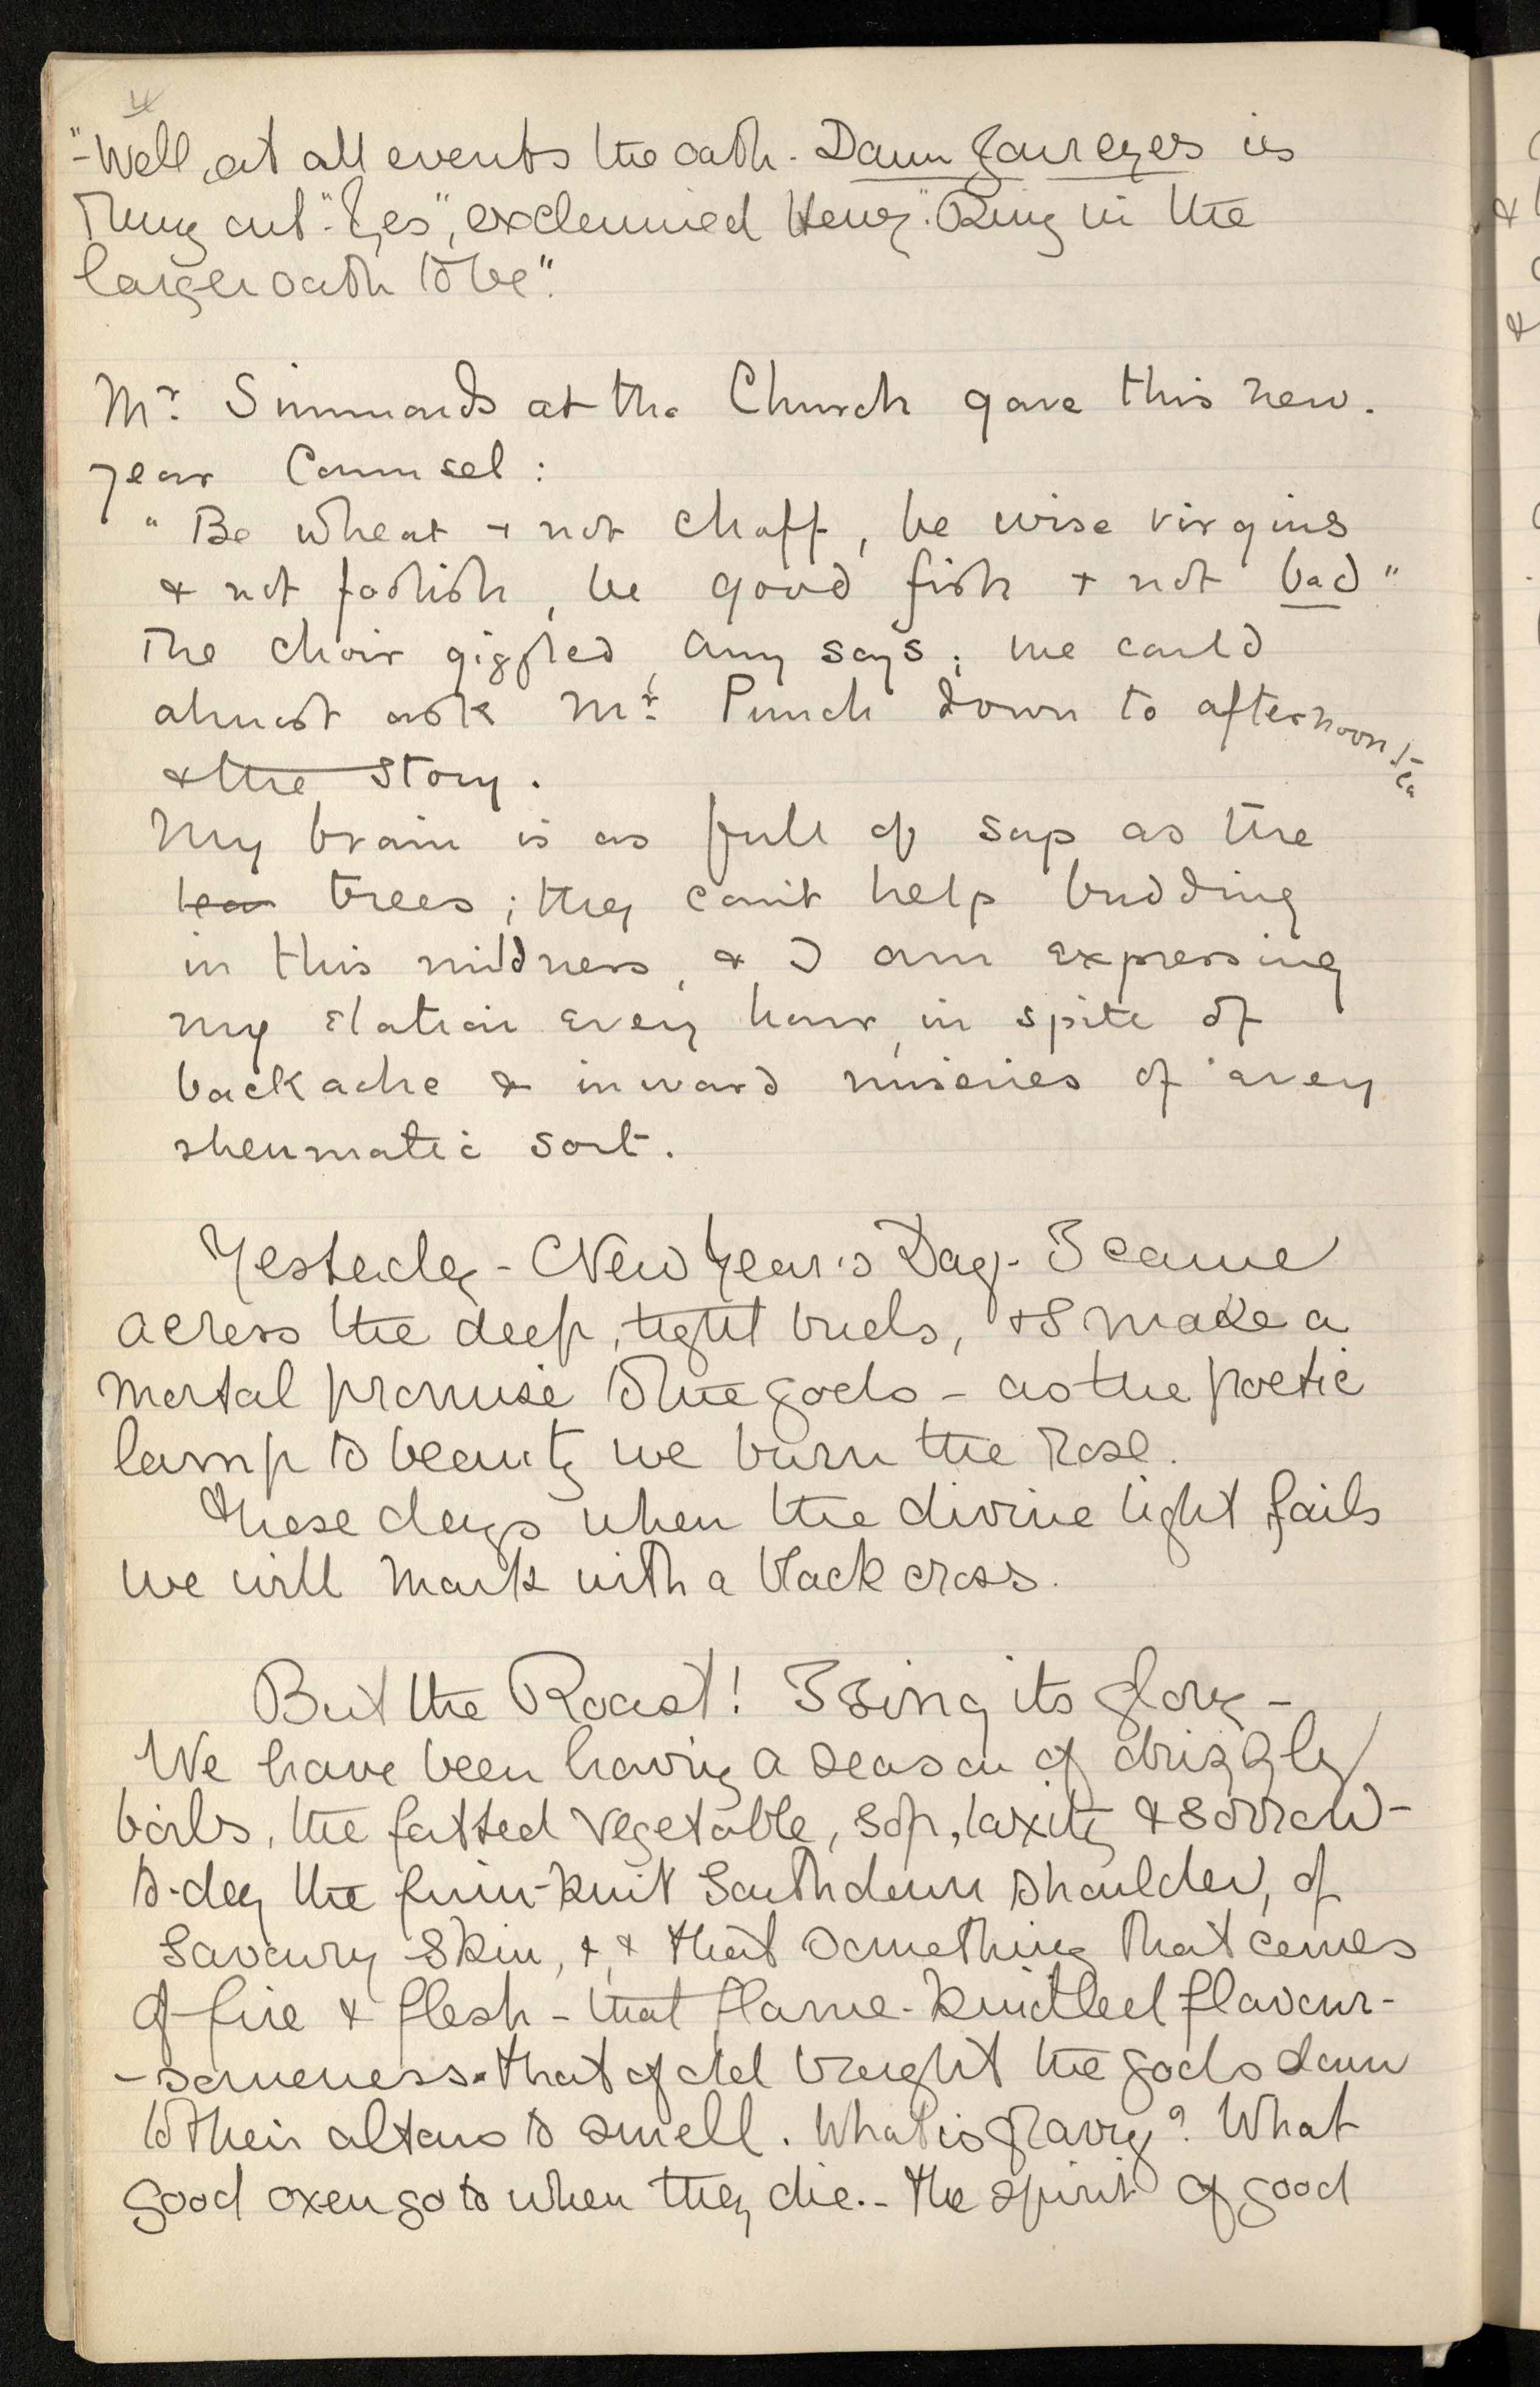 "- Well, at all events the oath - Damn your eyes is
rung out" "Yes", exclaimed Henry. "Ring in the
larger oath to be".
Mr. Simmonds at the Church gave this new.
year Counsel:
"Be wheat + not chaff, be wise virgins
& not foolish, be good fish + not bad"
The choir giggled, Amy says; we could
almost ask Mr. Punch down to afternoon tea
& the story.
My brain is as full of sap as the
trees; they can't help budding
in this mildness, & I am expressing
my elation every hour, in spite of
backache & inward miseries of every
rheumatic sort.
Yesterday - New Year's Day - I came
across the deep, tight buds, & I make a
mortal promise to the gods - as the poetic
lamp to beauty we burn the rose.
These days when the divine light fails
we will mark with a black cross.
But the Roast! I sing its glory -
We have been having a season of drizzly
boils, the fatted vegetable, sop, laxity & sorrow -
to-day the firm-knit Southdown shoulder, of
savoury skin, & & that something that comes
of fire & flesh - that flame-kindled flavour-
-someness that of old brought the gods down
to their altars to smell. What is gravy? What
good oxen go to when they die. - the spirit of good